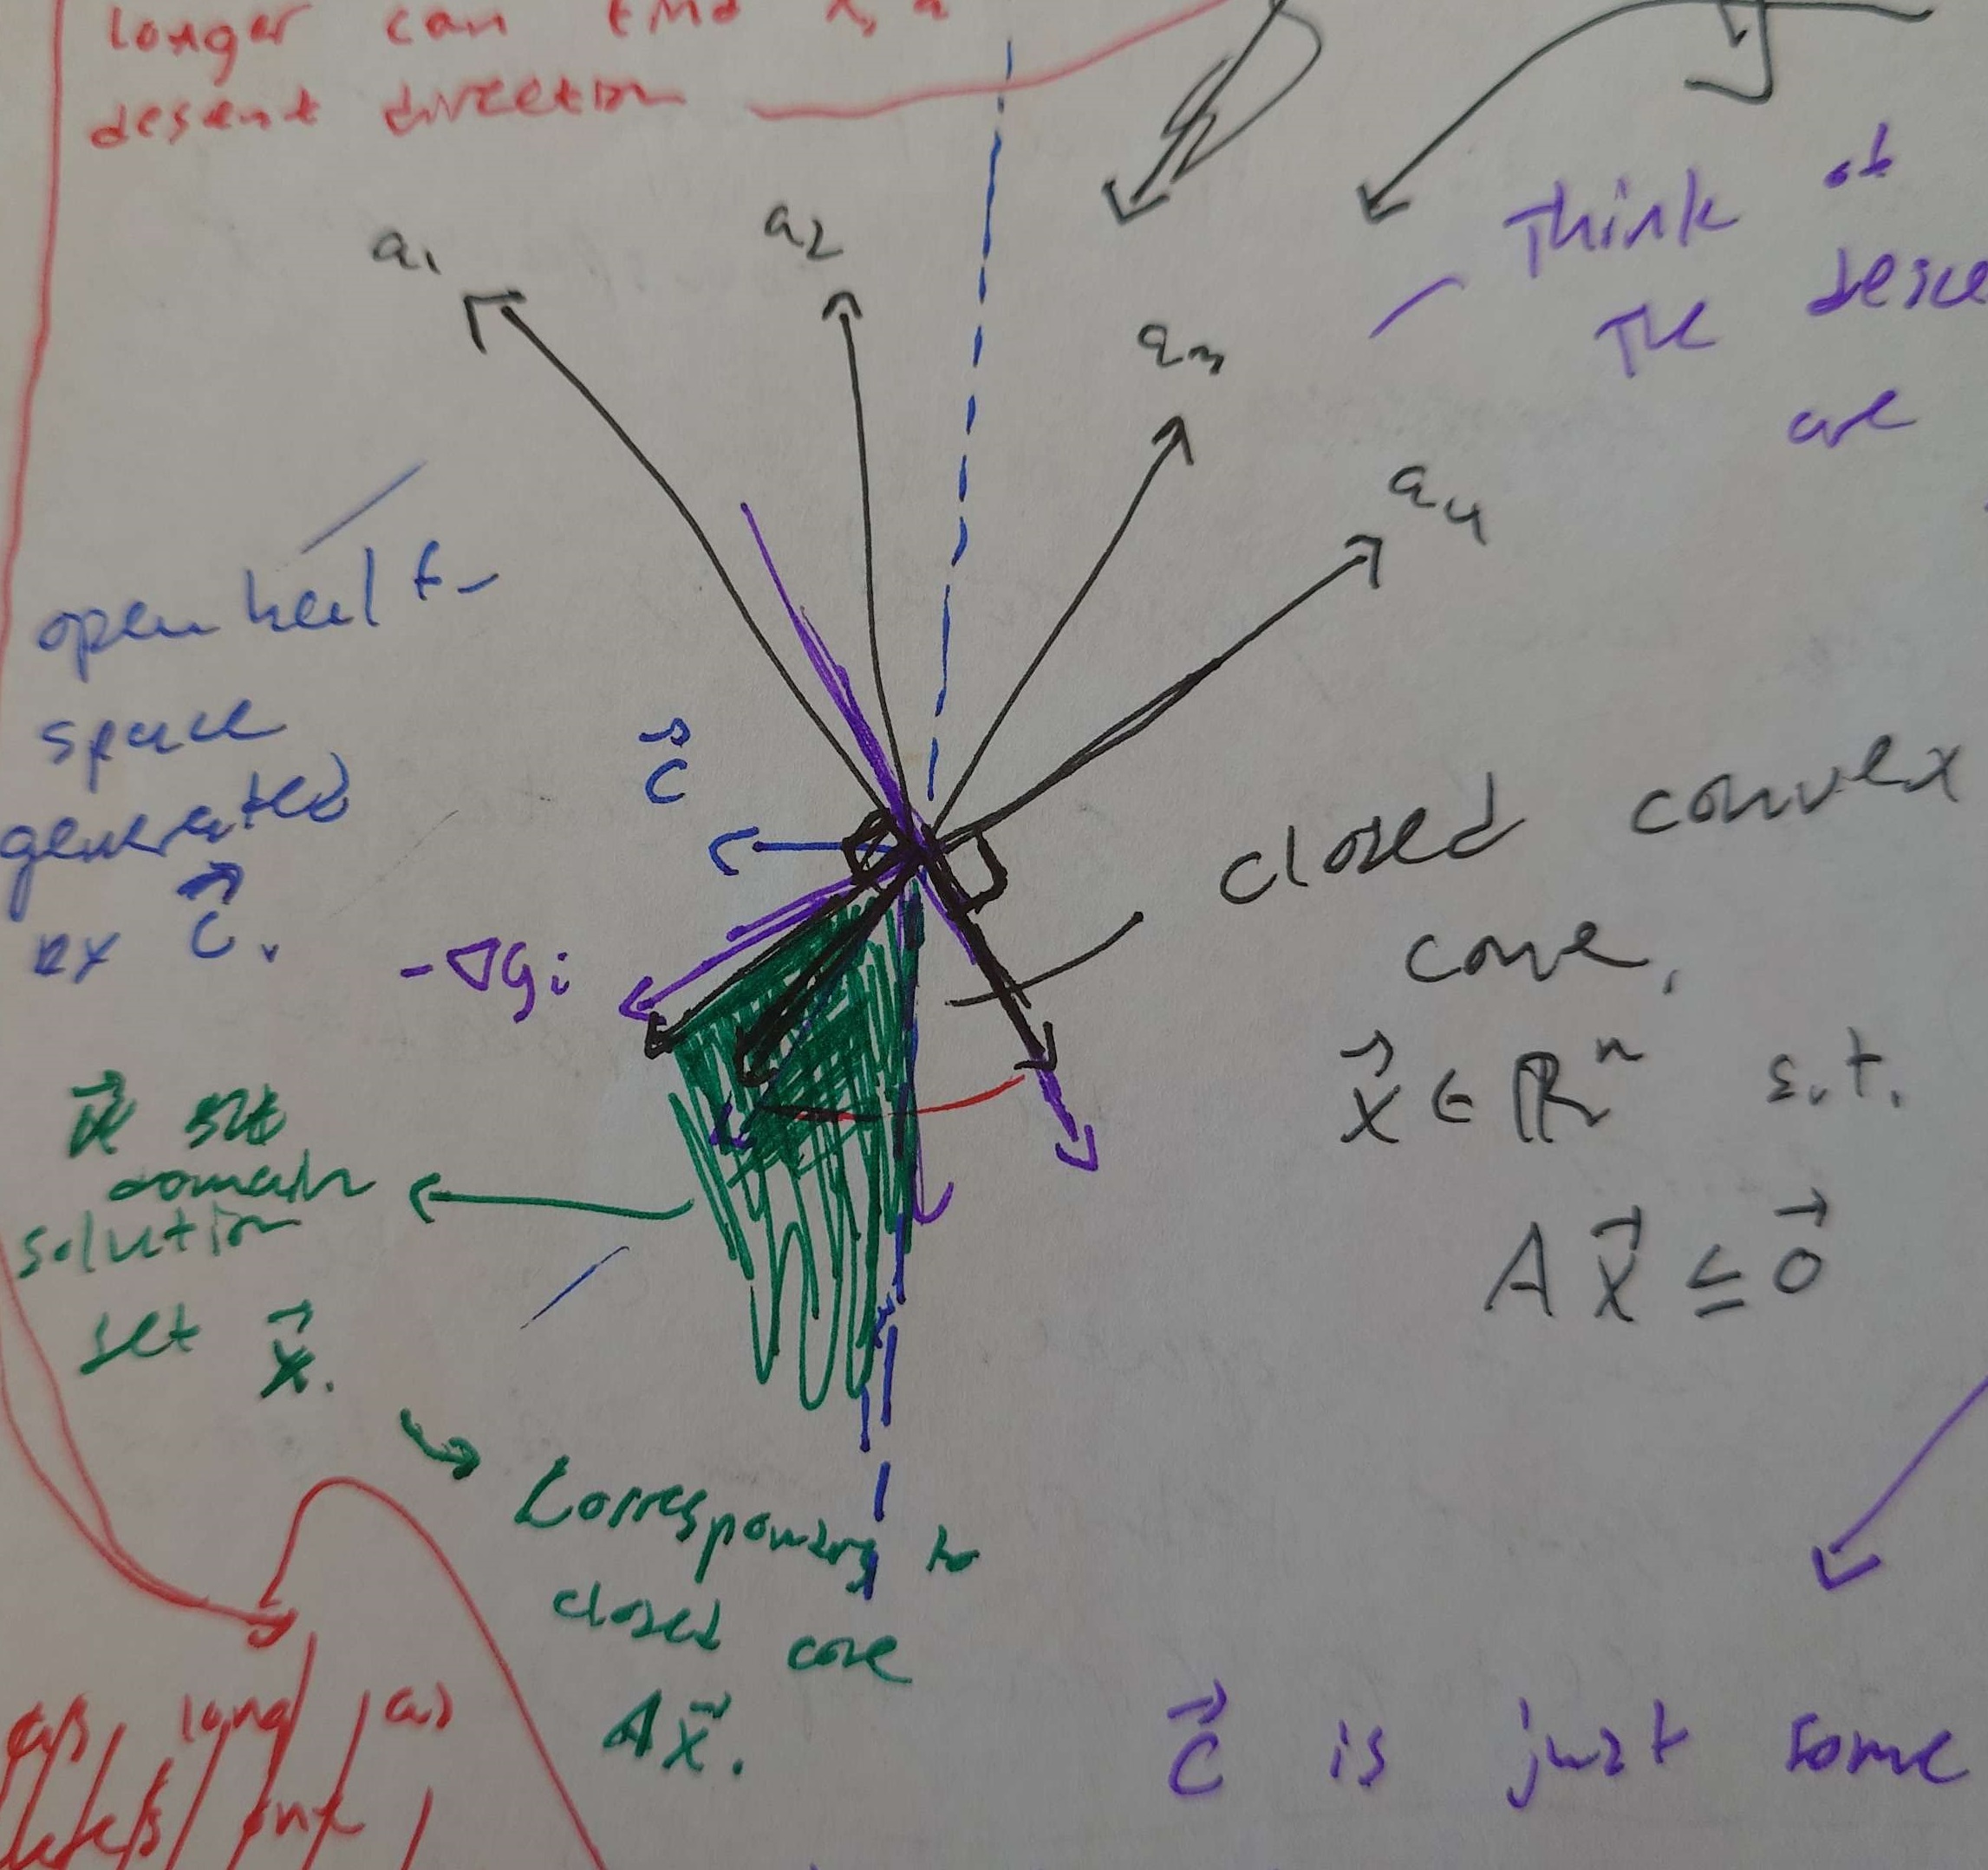 longer can find
descent direction
a₁
a₂
a₃
a₄
Think of
The desce
are
open half-
space
generated
by c⃗.
c⃗
-∇gᵢ
closed convex
cone,
x⃗ ∈ ℝⁿ s.t.
Ax⃗ ≤ 0⃗
domain
solution
set x⃗.
Corresponding to
closed cone
Ax⃗.
long as
c⃗ is just some